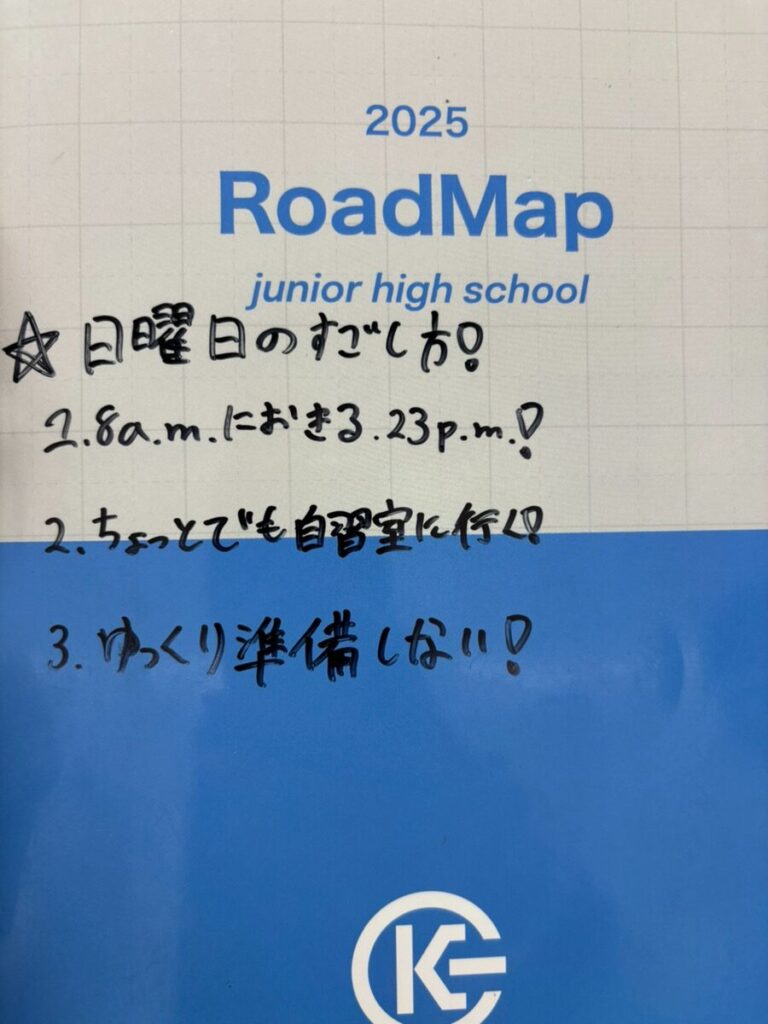 2025
RoadMap
junior high school
☆日曜日のすごし方!
1.8a.m.におきる.23p.m.!
2.ちょっとでも自習室に行く!
3.ゆっくり準備しない!
KE